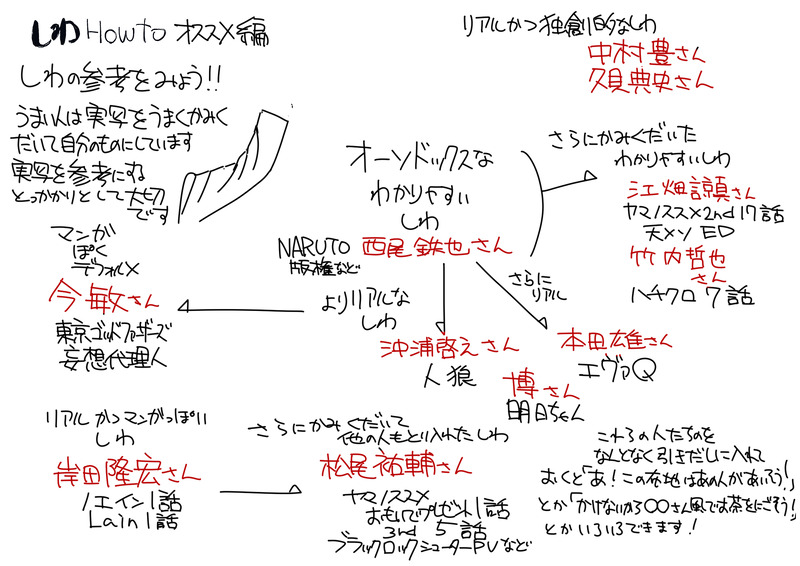 しわ Howto オススメ編
しわの参考をみよう!!
うまい人は実写をうまくかみく
だいて自分のものにしています
実写を参考にする
とっかかりとして大切
です
リアルかつ独創的なしわ
中村豊さん
久貝典史さん
オーソドックスな
わかりやすい
しわ
NARUTO 西尾鉄也さん
版権など
さらにかみくだいた
わかりやすいしわ
江畑諒真さん
ヤマノススメ2nd 17話
天メソ ED
竹内哲也
さん
ハチクロ 7話
マンガ
ぽく
デフォルメ
今敏さん
東京ゴッドファーザーズ
妄想代理人
よりリアルな
しわ
沖浦啓之さん
人狼
さらに
リアル
本田雄さん
エヴァQ
博さん
明日ちゃん
リアルかつマンガっぽい
しわ
岸田隆宏さん
ノエイン1話
Lain1話
さらにかみくだいて
他の人もとり入れたしわ
松尾祐輔さん
ヤマノススメ
おもいでプレゼント1話
3rd 5話
ブラックロックシューターPVなど
これらの人たちのを
なんとなく引きだしに入れて
おくと「あ!この布地はあの人があいそう!」
とか「かけないから〇〇さん風でお茶をにごそう!」
とかいろいろできます!